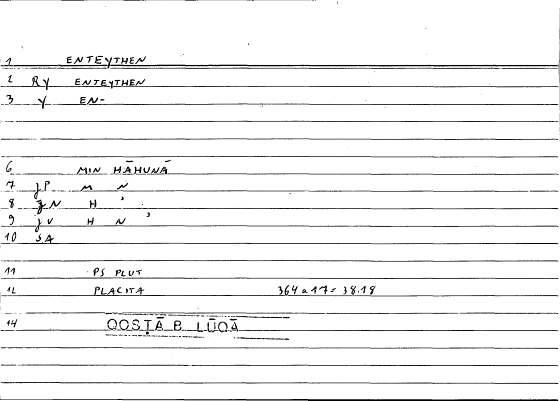 1 ENTEYTHEN
2 RY ENTEYTHEN
3 Y EN-
6 MIN HĀHUNĀ
7 jP M N
8 jN H ʾ
9 jV H N ʾ
10 SA
11 PS PLUT
12 PLACITA 364a17 = 38.18
14 QOSṬĀ B. LŪQĀ